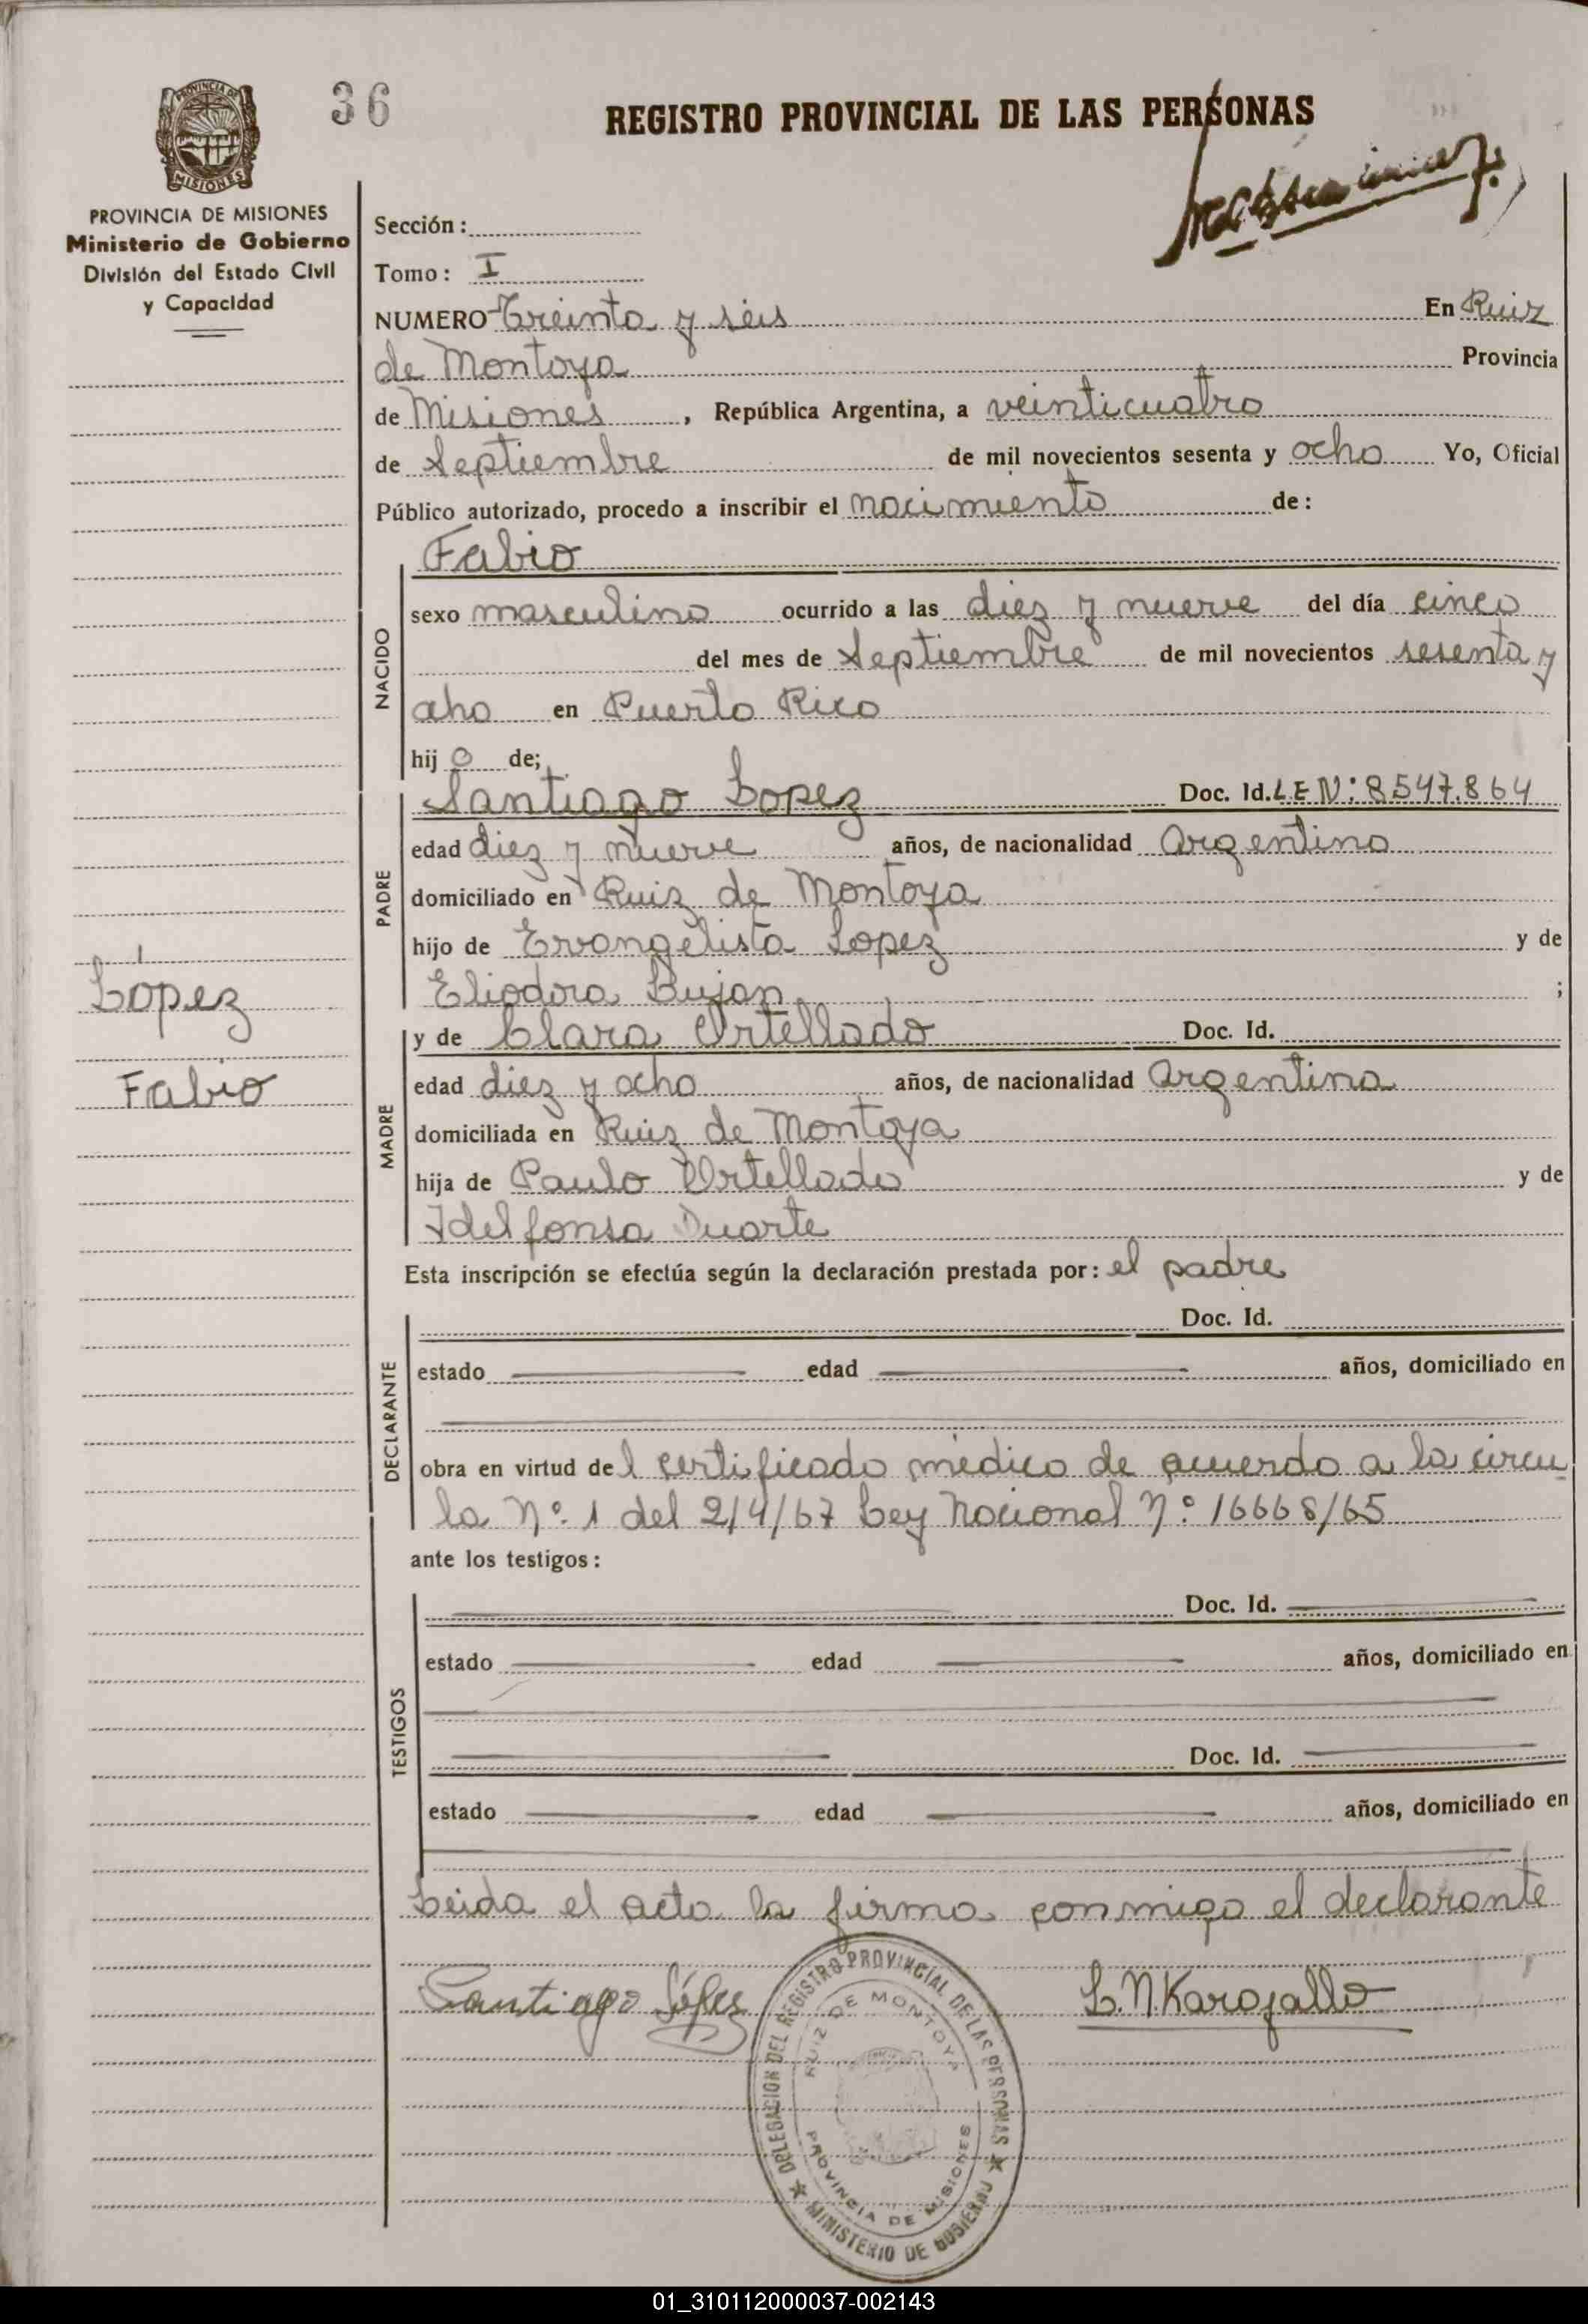 36
REGISTRO PROVINCIAL DE LAS PERSONAS
PROVINCIA DE
MISIONES
PROVINCIA DE MISIONES
Ministerio de Gobierno
División del Estado Civil
y Capacidad
Sección:
Tomo: I
NUMERO Treinta y seis En Ruiz
de Montoya Provincia
de Misiones, República Argentina, a veinticuatro
de Septiembre de mil novecientos sesenta y ocho Yo, Oficial
Público autorizado, procedo a inscribir el nacimiento de:
Fabio
NACIDO
sexo masculino ocurrido a las diez y nueve del día cinco
del mes de Septiembre de mil novecientos sesenta y
ocho en Puerto Rico
hij o de;
Santiago Lopez Doc. Id. L E N: 8547.864
PADRE
edad diez y nueve años, de nacionalidad Argentino
domiciliado en Ruiz de Montoya
hijo de Evangelista Lopez y de
Eliodora Bujan ;
López
Fabio
MADRE
y de Clara Ortellado Doc. Id.
edad diez y ocho años, de nacionalidad Argentina
domiciliada en Ruiz de Montoya
hija de Paulo Ortellado y de
Idelfonsa Duarte
Esta inscripción se efectúa según la declaración prestada por: el padre
DECLARANTE
Doc. Id.
estado edad años, domiciliado en
obra en virtud del certificado médico de acuerdo a la circu
la Nº. 1 del 2/4/67 Ley Nacional Nº 16668/65
ante los testigos:
TESTIGOS
Doc. Id.
estado edad años, domiciliado en
Doc. Id.
estado edad años, domiciliado en
Leida el acta la firma conmigo el declarante
Santiago López
DELEGACION DEL REGISTRO PROVINCIAL DE LAS PERSONAS
RUIZ DE MONTOYA
PROVINCIA DE MISIONES
MINISTERIO DE GOBIERNO
01_310112000037-002143